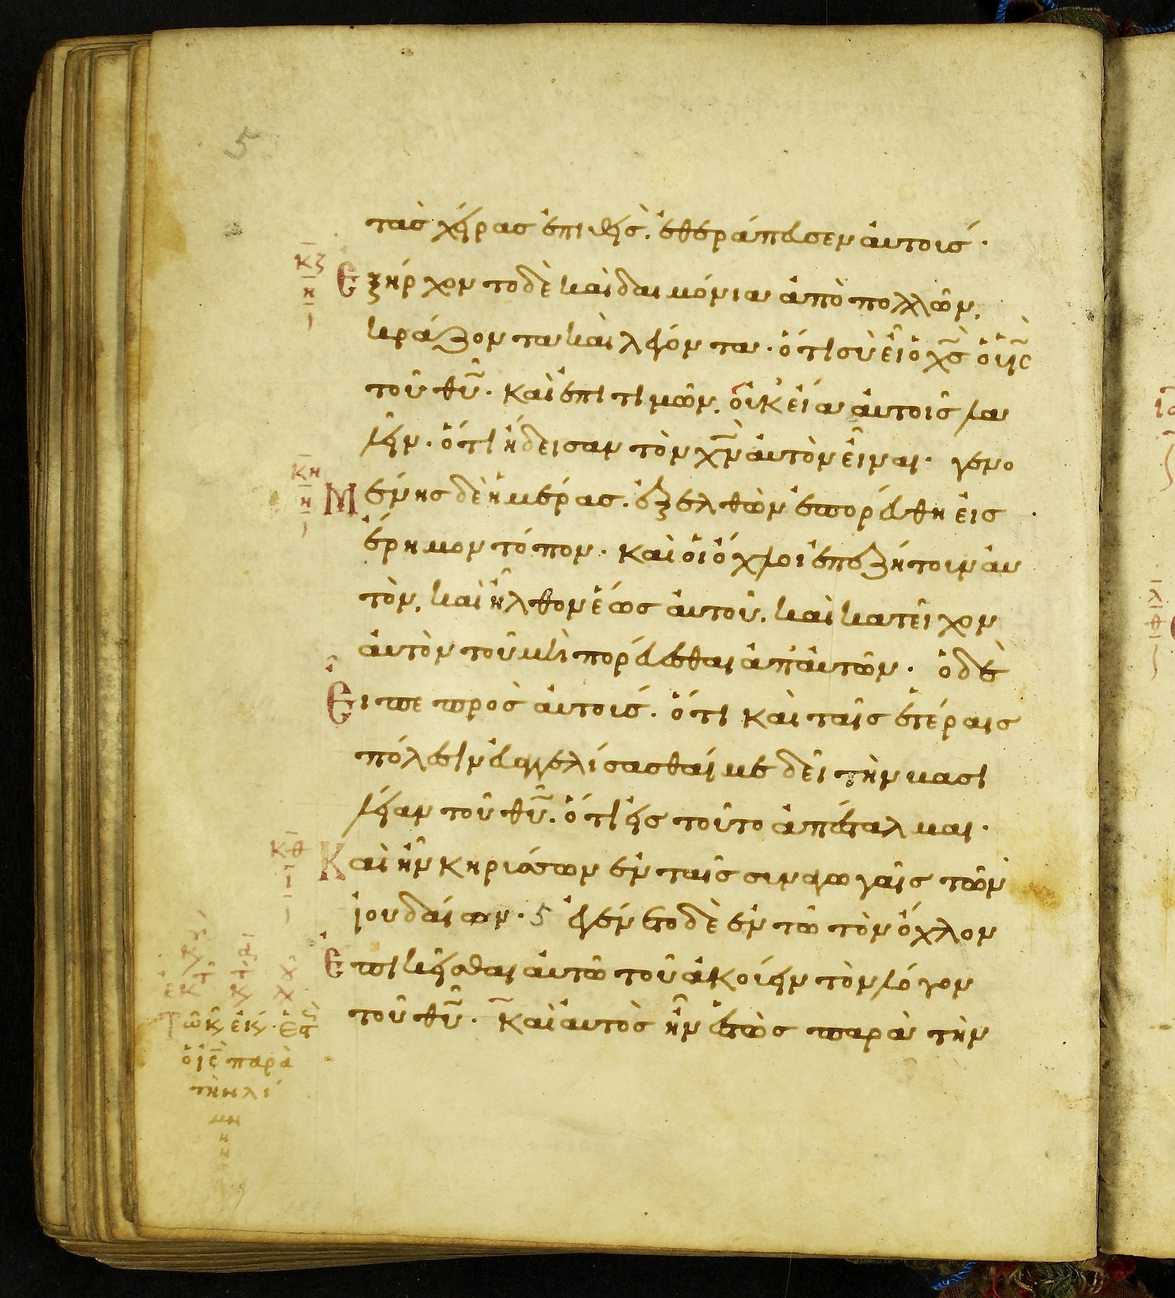 5
τὰσ χεῖρασ ἐπιθεὶσ. ἐθεράπευσεν ἀυτοισ·
κζ
η
Ἐξήρχοντο δὲ καὶ δαιμόνια ἀπὸ πολλῶν,
κράζοντα καὶ λέγοντα· ὅτι σὺ εἶ ὁ χς ὁ υἱὸς
τοῦ θῦ· καὶ ἐπιτιμῶν, οὐκ εἴα ἀυτοισ λα
λεῖν· ὅτι ἤδεισαν τὸν χν ἀυτὸν εἶναι· γενο
κη
η
Μένησ δὲ ἡμέρασ. ἐξελθὼν ἐπορεύθη εἰσ
ἔρημον τόπον· καὶ οἱ ὄχλοι ἐπεζήτουν ἀυ
τὸν, καὶ ἦλθον ἕωσ ἀυτοῦ. καὶ κατεῖχον
ἀυτὸν τοῦ μὴ πορεύεσθαι ἀπ' ἀυτῶν· ὁ δὲ
Εἶπε πρὸσ ἀυτοισ. ὅτι καὶ ταῖσ ἑτέραισ
πόλεσιν ἐυαγγελίσασθαί με δεῖ τὴν βασι
λείαν τοῦ θῦ. ὅτι εἰσ τοῦτο ἀπέσταλμαι·
κθ
ι
Καὶ ἦν κηρύσσων ἐν ταῖσ συναγωγαῖσ τῶν
ἰουδαίων· 5 ἐγένετο δὲ ἐν τῶ τὸν ὄχλον
Ἐπικεῖσθαι ἀυτῶ τοῦ ἀκούειν τὸν λόγον
τοῦ θῦ· καὶ ἀυτὸσ ἦν ἑστὼσ παρὰ τὴν
Τῶ κ ἐκ ἑστ
ὁ ις παρὰ
τὴν λί
μνην